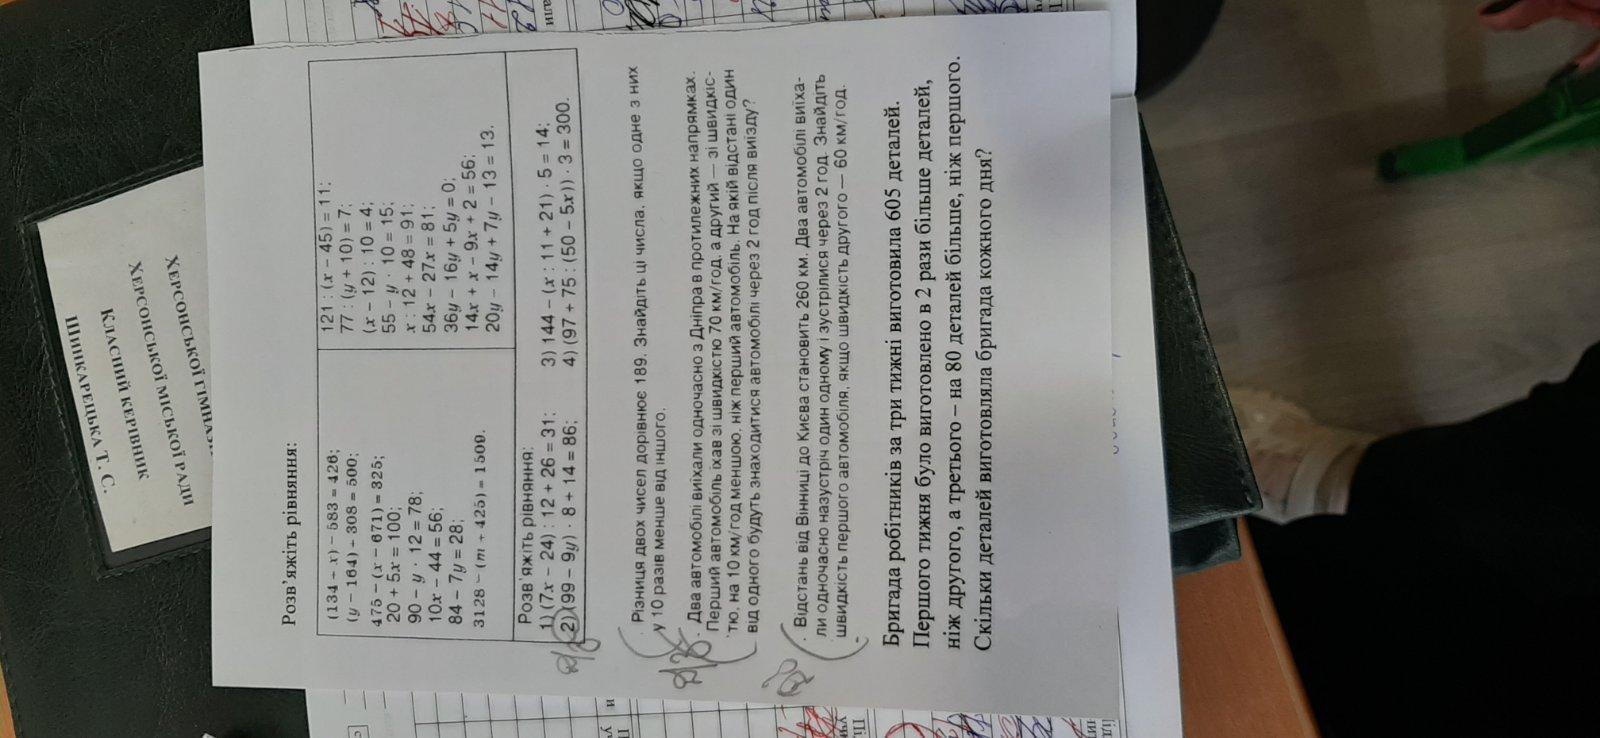 ШИНКАРЕЦЬКА Т. С.
КЛАСНИЙ КЕРІВНИК
ХЕРСОНСЬКОЇ МІСЬКОЇ РАДИ
ХЕРСОНСЬКОЇ
Розв’яжіть рівняння:
(134 + x) − 583 = 426;
(y − 164) + 308 = 500;
475 − (x − 671) = 325;
20 + 5x = 100;
90 − y · 12 = 78;
10x − 44 = 56;
84 − 7y = 28;
3128 − (m + 425) = 1509.
121 : (x − 45) = 11;
77 : (y + 10) = 7;
(x − 12) : 10 = 4;
55 − y · 10 = 15;
x : 12 + 48 = 91;
54x − 27x = 81;
36y − 16y + 5y = 0;
14x + x − 9x + 2 = 56;
20y − 14y + 7y − 13 = 13.
Розв’яжіть рівняння:
1) (7x − 24) : 12 + 26 = 31;
2) (99 − 9y) · 8 + 14 = 86;
3) 144 − (x : 11 + 21) · 5 = 14;
4) (97 + 75 : (50 − 5x)) · 3 = 300.
Різниця двох чисел дорівнює 189. Знайдіть ці числа, якщо одне з них
у 10 разів менше від іншого.
Два автомобілі виїхали одночасно з Дніпра в протилежних напрямках.
Перший автомобіль їхав зі швидкістю 70 км/год, а другий — зі швидкіс-
тю, на 10 км/год меншою, ніж перший автомобіль. На якій відстані один
від одного будуть знаходитися автомобілі через 2 год після виїзду?
Відстань від Вінниці до Києва становить 260 км. Два автомобілі виїха-
ли одночасно назустріч один одному і зустрілися через 2 год. Знайдіть
швидкість першого автомобіля, якщо швидкість другого — 60 км/год.
Бригада робітників за три тижні виготовила 605 деталей.
Першого тижня було виготовлено в 2 рази більше деталей,
ніж другого, а третього – на 80 деталей більше, ніж першого.
Скільки деталей виготовляла бригада кожного дня?